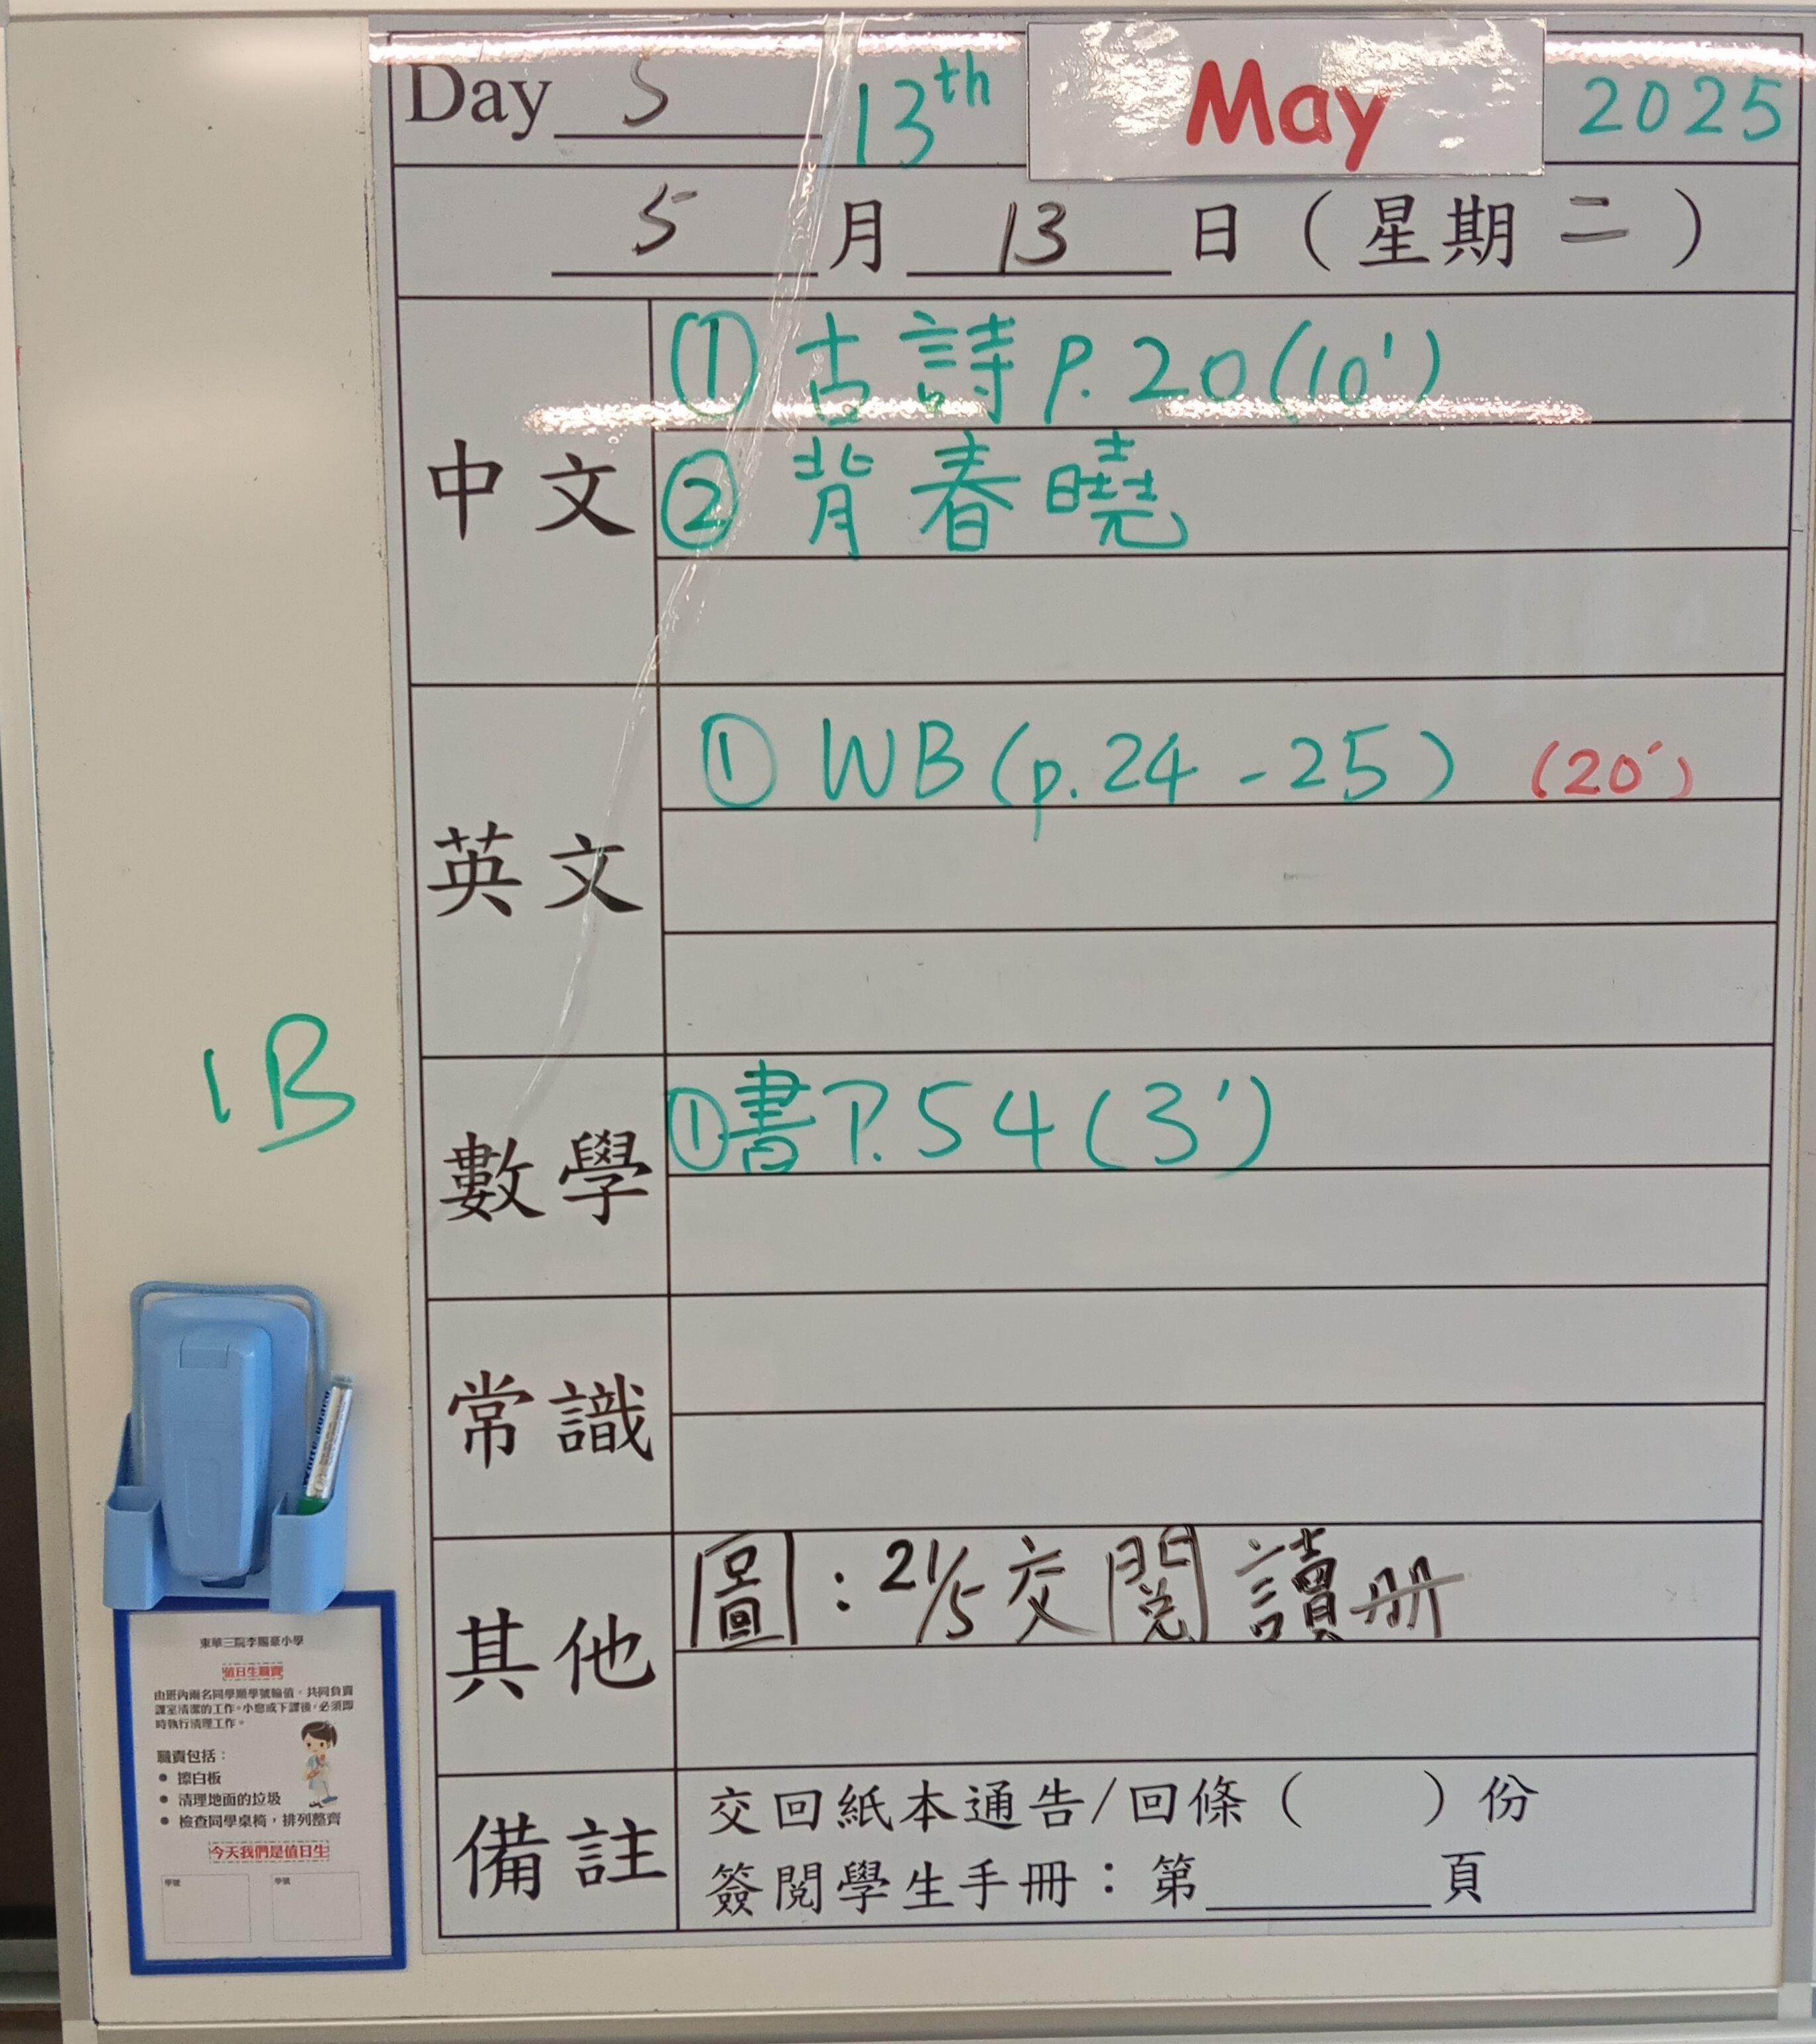 Day 5 13th May 2025
5 月 13 日 ( 星期 二 )
中文
① 古詩 P. 20 (10')
② 背春曉
英文
① WB (p. 24 - 25) (20')
數學
① 書 P. 54 (3')
常識
其他
圖 : 21/5 交閱讀册
備註
交回紙本通告/回條 ( ) 份
簽閱學生手冊：第 頁
1B
東華三院李賜豪小學
值日生職責
由班內兩名同學順學號輪值，共同負責
課室清潔的工作。小息或下課後，必須即
時執行清理工作。
職責包括：
● 擦白板
● 清理地面的垃圾
● 檢查同學桌椅，排列整齊
今天我們是值日生
學號 學號